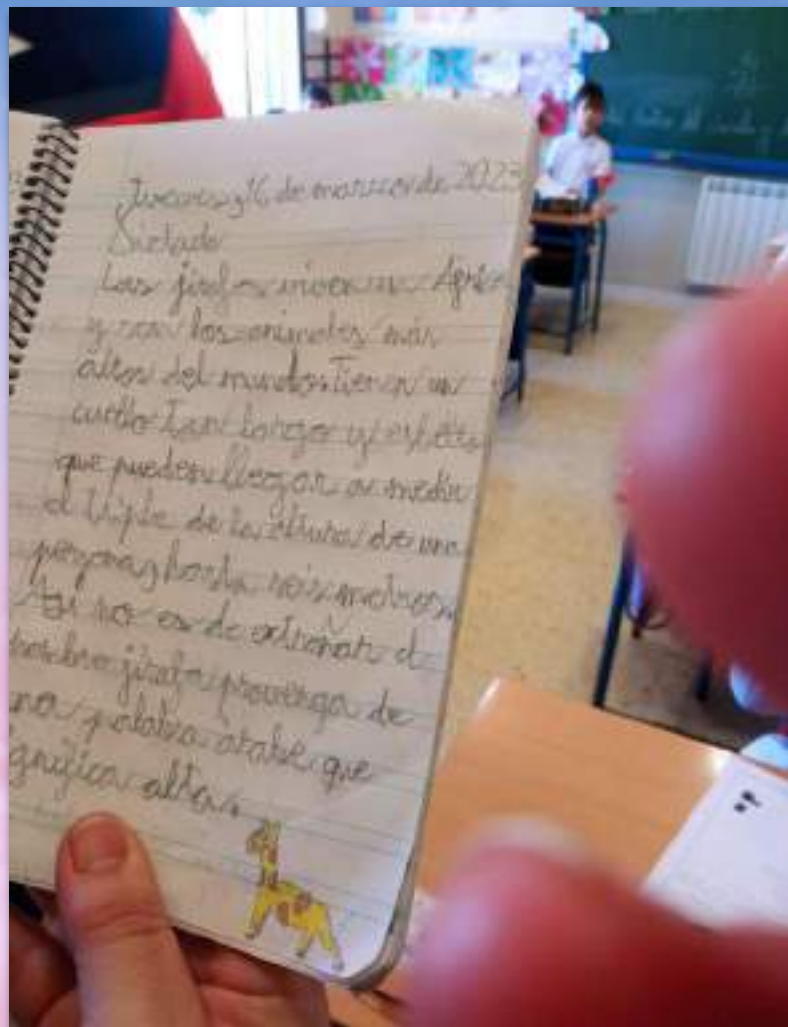 Jueves, 16 de marzo de 2023
Dictado
Las jirafas viven en África
y son los animales más
altos del mundo. Tienen un
cuello tan largo y esbelto
que pueden llegar a medir
el triple de la altura de una
persona, hasta seis metros.
Así no es de extrañar el
nombre jirafa provenga de
na palabra árabe que
gnifica alta.